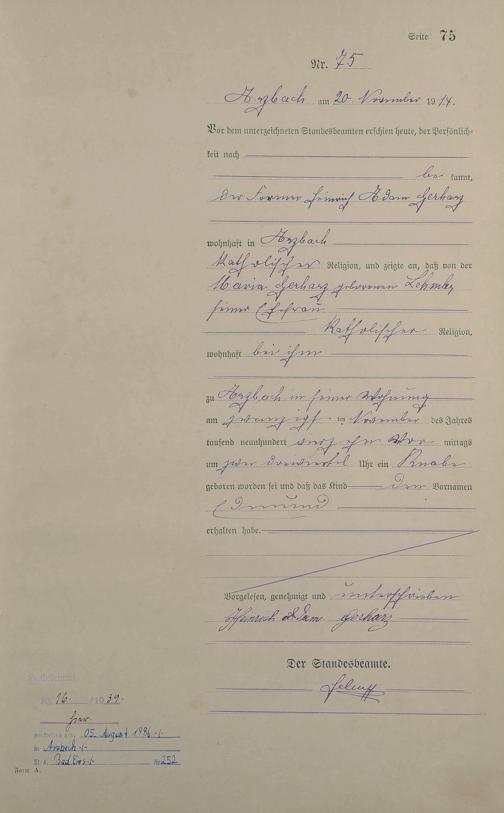 Seite 75
Nr. 75
Arzbach am 20. November 1914.
Vor dem unterzeichneten Standesbeamten erschien heute, der Persönlich-
keit nach
be kannt,
der Former Heinrich Adam Gerharz
wohnhaft in Arzbach
katholischer Religion, und zeigte an, daß von der
Maria Gerharz geborenen
seiner Ehefrau
katholischer Religion,
wohnhaft bei ihm
zu Arzbach in seiner Wohnung
am zwanzigst en November des Jahres
tausend neunhundert vierzehn Vor mittags
um zwei dreiviertel Uhr ein Knabe
geboren worden sei und daß das Kind den Vornamen
Edmund
erhalten habe.
Vorgelesen, genehmigt und unterschrieben
Heinrich Adam Gerharz
Der Standesbeamte.
Nr. 16 /1939
hier
gestorben am 05. August 1986 -/-
in Arzbach -/-
St. A. Bad Ems -/- Nr 252
Form A.